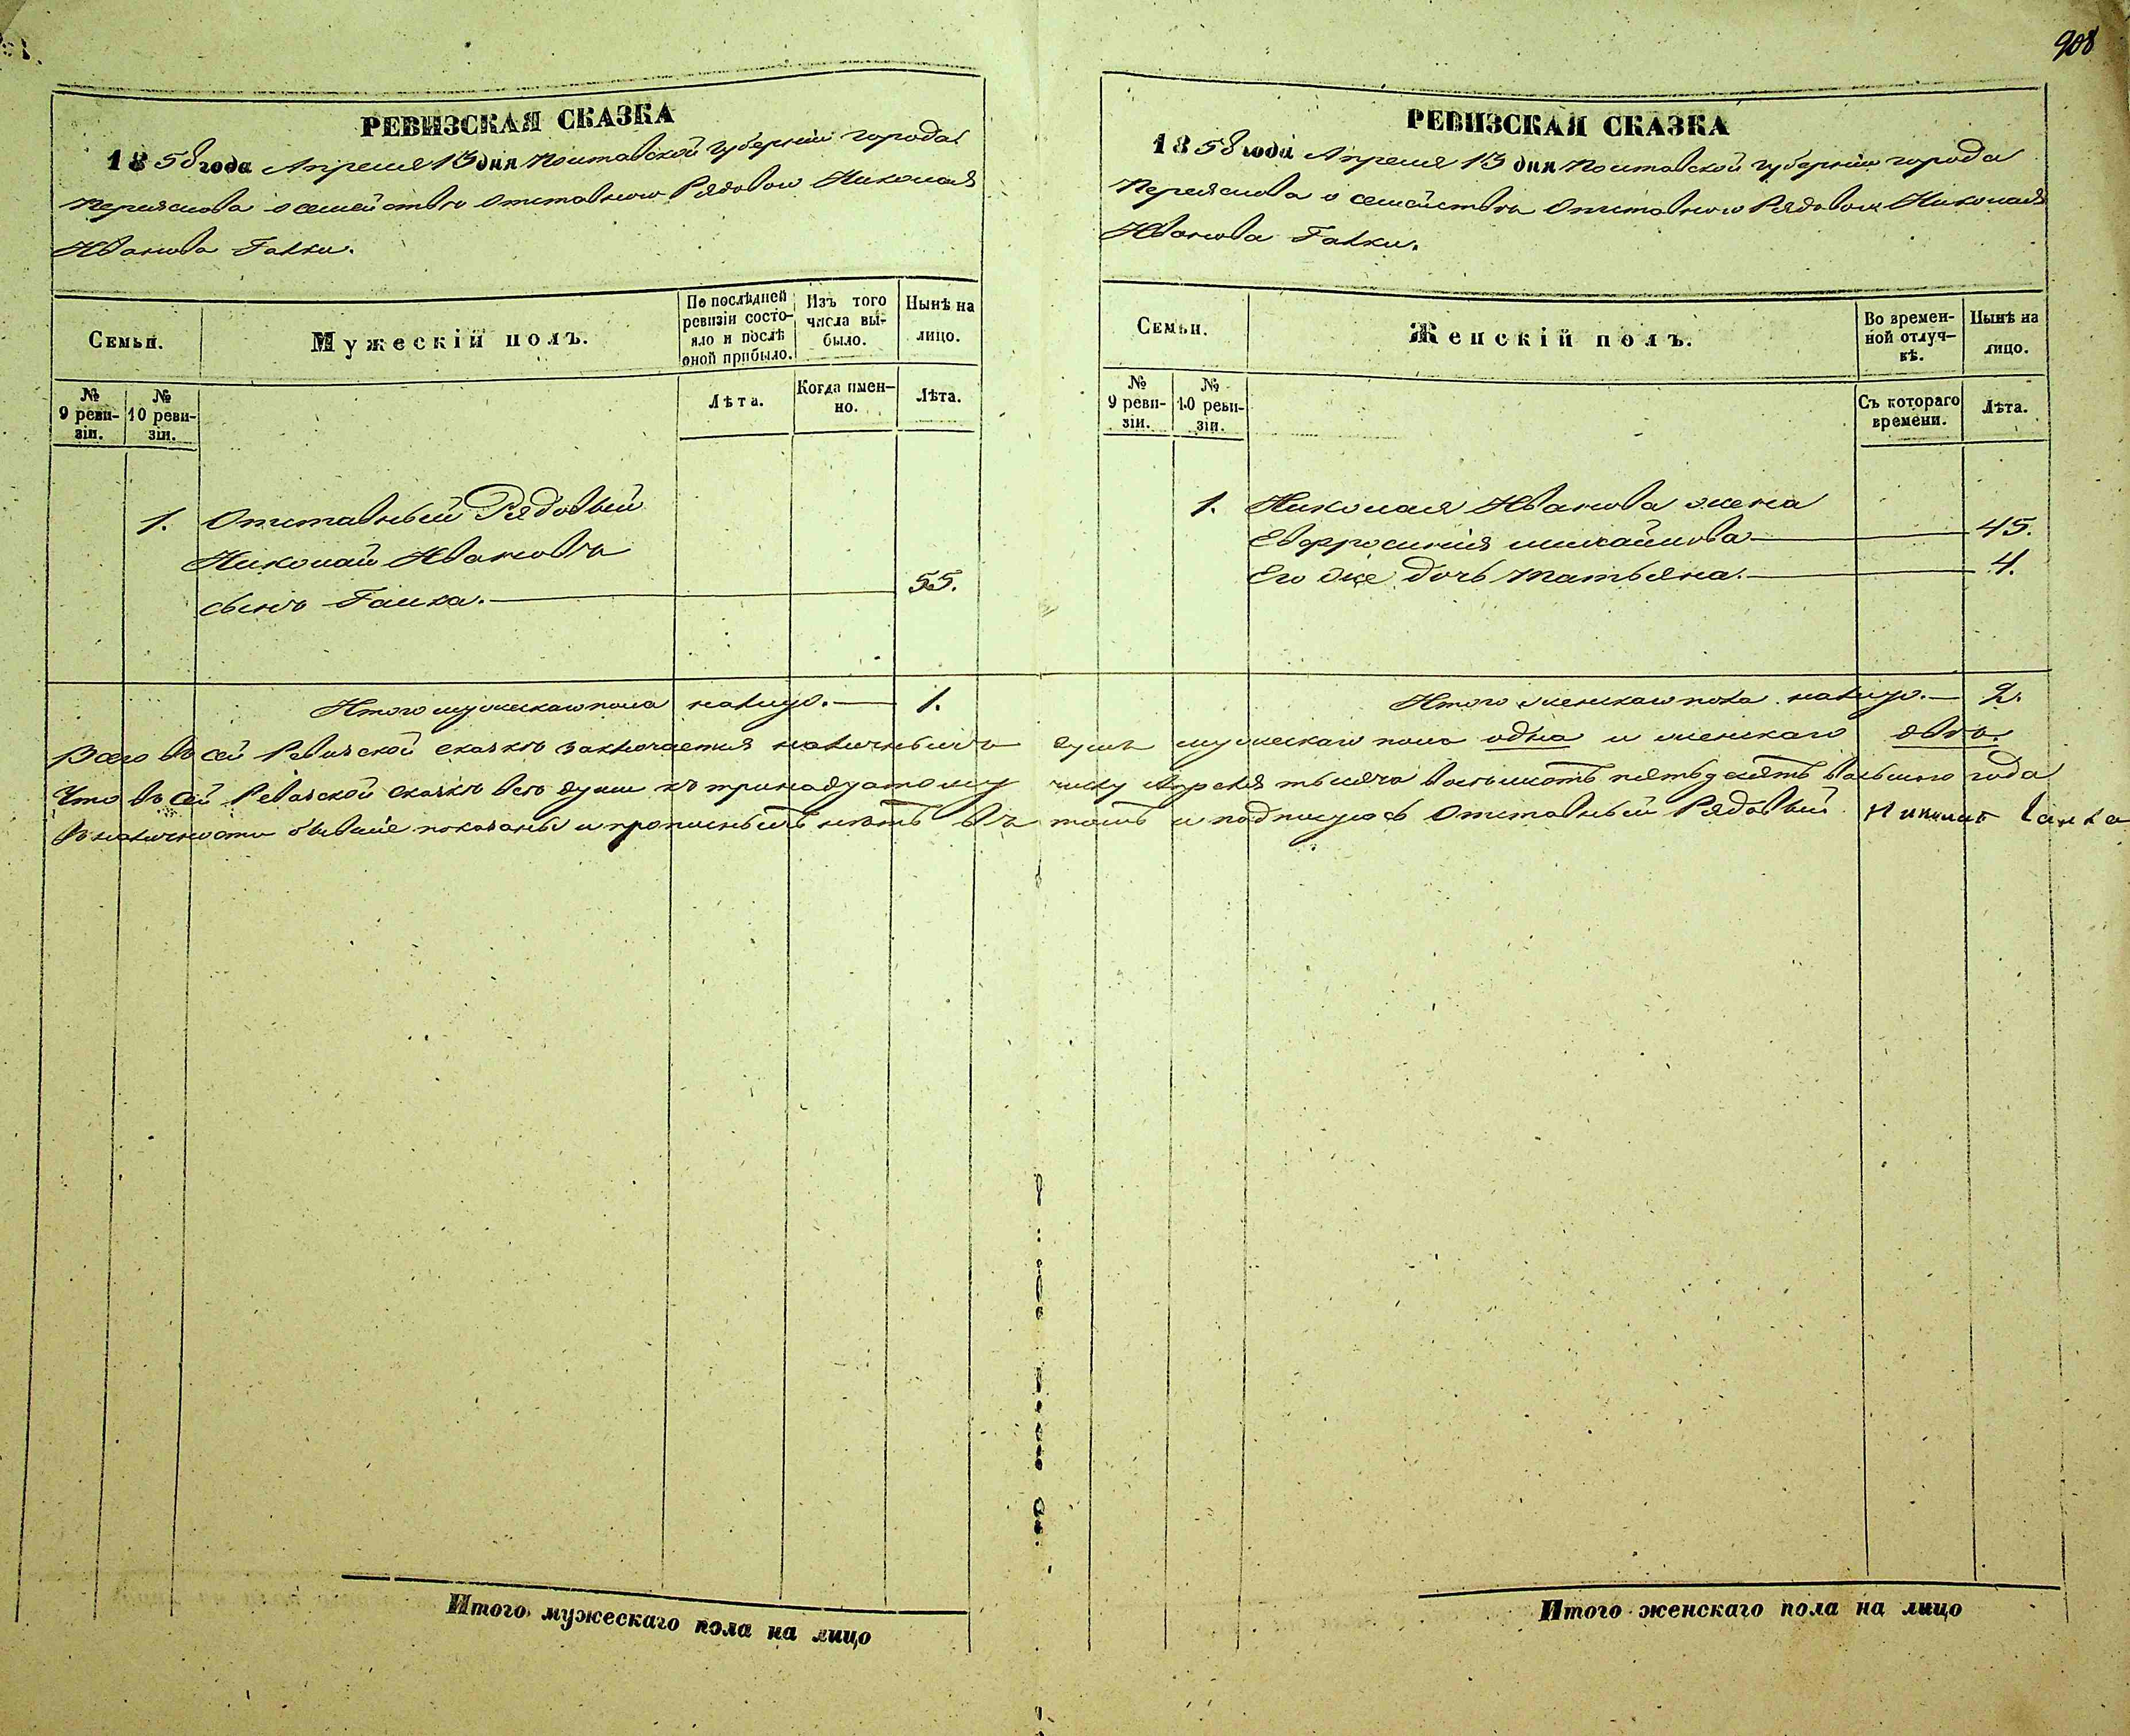 908
РЕВИЗСКАЯ СКАЗКА
1858 года Апреля 13 дня Полтавской губерніи города
Переяслова о семействѣ Отставного Рядового Николая
Иванова Галки.
Семьи.
Мужескій полъ.
По послѣдней ревизіи состояло и послѣ оной прибыло.
Изъ того числа выбыло.
Нынѣ на лицо.
№ 9 ревизіи.
№ 10 ревизіи.
Лѣта.
Когда именно.
Лѣта.
1. Отставный Рядовый
Николай Ивановъ
сынъ Галка. 55.
Итого мужескаго пола налицо. 1.
РЕВИЗСКАЯ СКАЗКА
1858 года Апреля 13 дня Полтавской губерніи города
Переяслова о семействѣ Отставного Рядового Николая
Иванова Галки.
Семьи.
Женскій полъ.
Во временной отлучкѣ.
Нынѣ на лицо.
№ 9 ревизіи.
№ 10 ревизіи.
Съ котораго времени.
Лѣта.
1. Николая Иванова жена
Евфросинія Михайлова 45.
Его же дочь Татьяна. 4.
Итого женскаго пола налицо. 2.
Всего въ сей Ревизской сказкѣ заключается наличныхъ душъ мужескаго пола одна и женскаго двѣ.
Что въ сей Ревизской сказкѣ всѣ души къ тринадцатому числу Апреля тысяча восемьсотъ пятьдесятъ восьмого года
въ наличности бывшіе показаны и прописныхъ нѣтъ въ томъ и подписуюсь Отставный Рядовый Николай Галка
Итого мужескаго пола на лицо
Итого женскаго пола на лицо